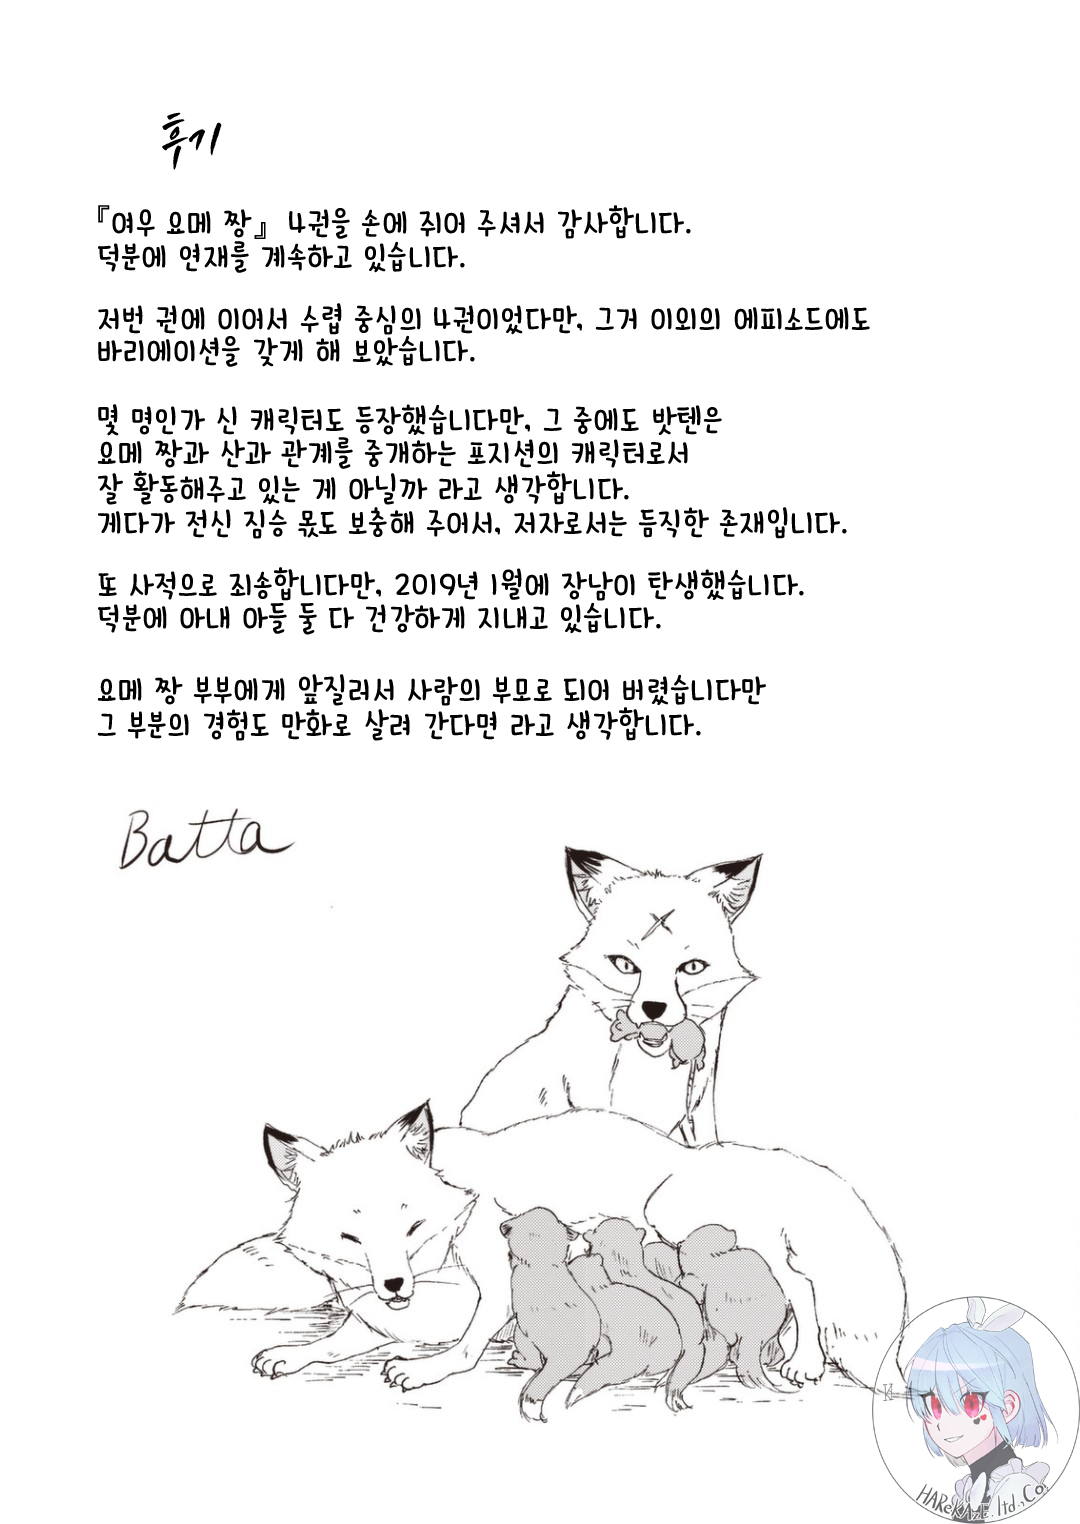 후기
『여우 요메 짱』 4권을 손에 쥐어 주셔서 감사합니다.
덕분에 연재를 계속하고 있습니다.
저번 권에 이어서 수렵 중심의 4권이었다만, 그거 이외의 에피소드에도
바리에이션을 갖게 해 보았습니다.
몇 명인가 신 캐릭터도 등장했습니다만, 그 중에도 밧텐은
요메 짱과 산과 관계를 중개하는 포지션의 캐릭터로서
잘 활동해주고 있는 게 아닐까 라고 생각합니다.
게다가 전신 짐승 몫도 보충해 주어서, 저자로서는 듬직한 존재입니다.
또 사적으로 죄송합니다만, 2019년 1월에 장남이 탄생했습니다.
덕분에 아내 아들 둘 다 건강하게 지내고 있습니다.
요메 짱 부부에게 앞질러서 사람의 부모로 되어 버렸습니다만
그 부분의 경험도 만화로 살려 간다면 라고 생각합니다.
Batta